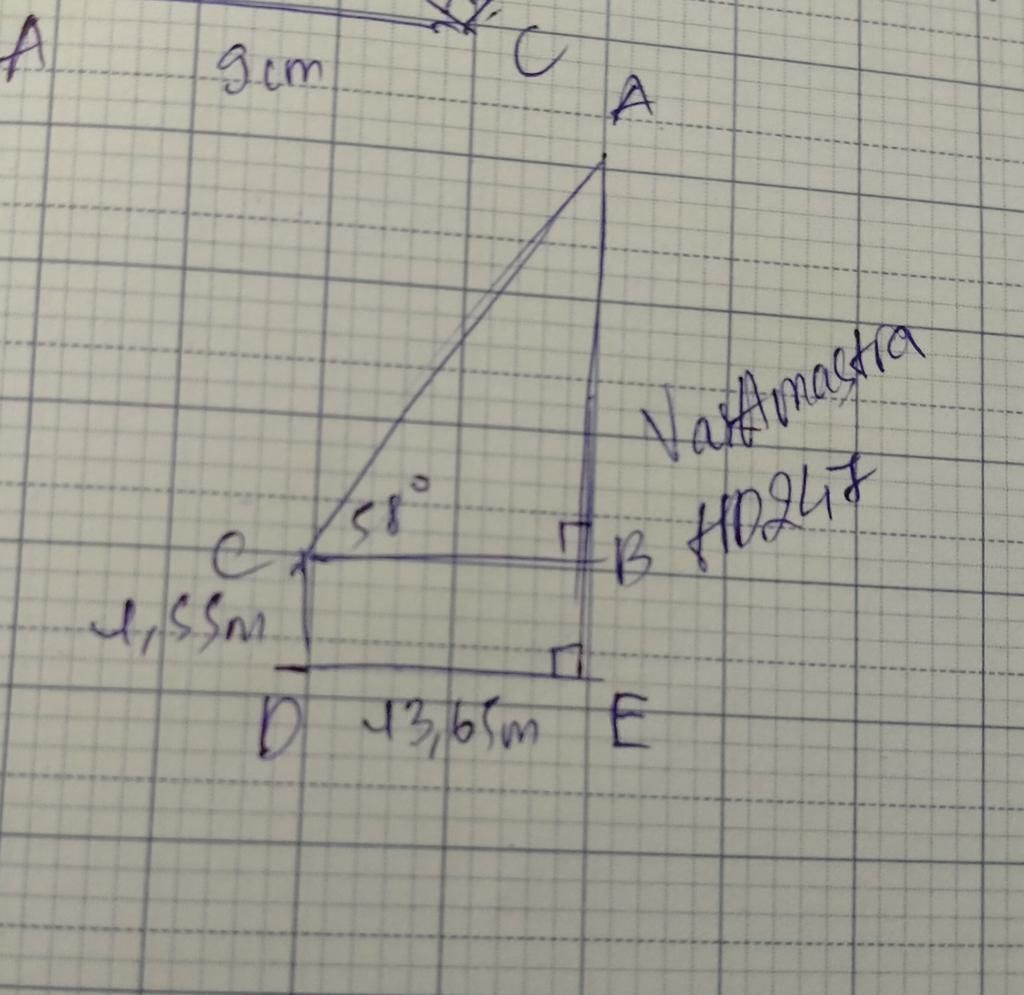 A
9cm
C
A
58°
C
B
1,55m
D
13,65m
E
HD247